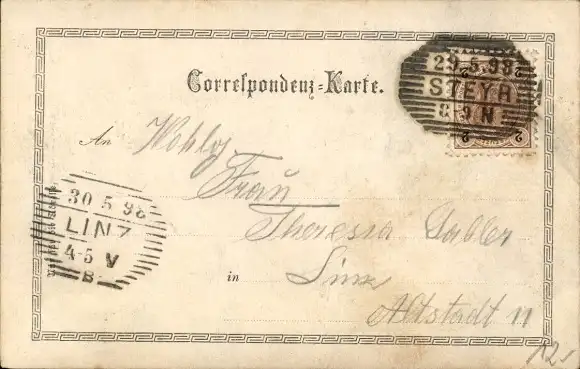 29.5.98
STEYR
8-9 N
2 2
Correspondenz-Karte.
An Wohlg
Frau
Theressa Gabler
30 5 98
LINZ
4-5 V
B
in Linz
Altstadt 11
12,-